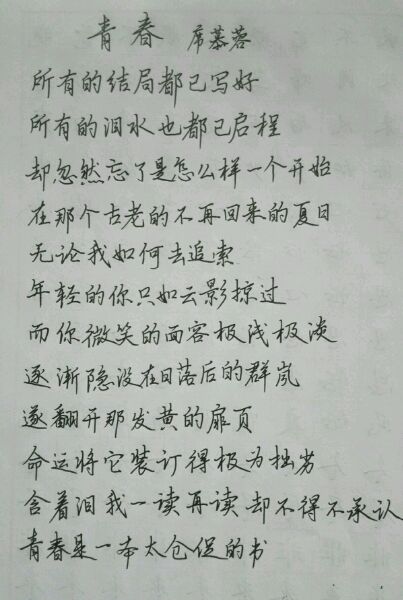 青春 席慕蓉
所有的结局都已写好
所有的泪水也都已启程
却忽然忘了是怎么样一个开始
在那个古老的不再回来的夏日
无论我如何去追索
年轻的你只如云影掠过
而你微笑的面容极浅极淡
逐渐隐没在日落后的群岚
遂翻开那发黄的扉页
命运将它装订得极为拙劣
含着泪我一读再读却不得不承认
青春是一本太仓促的书